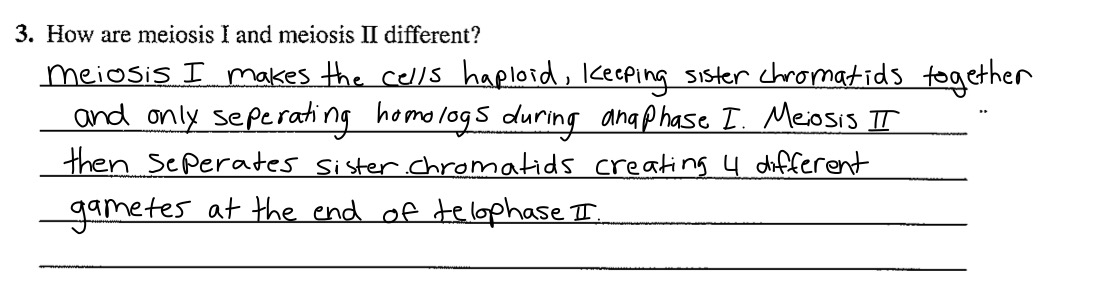 3. How are meiosis I and meiosis II different?
meiosis I makes the cells haploid, keeping sister chromatids together
and only seperating homologs during anaphase I. Meiosis II
then seperates sister chromatids creating 4 different
gametes at the end of telophase II.